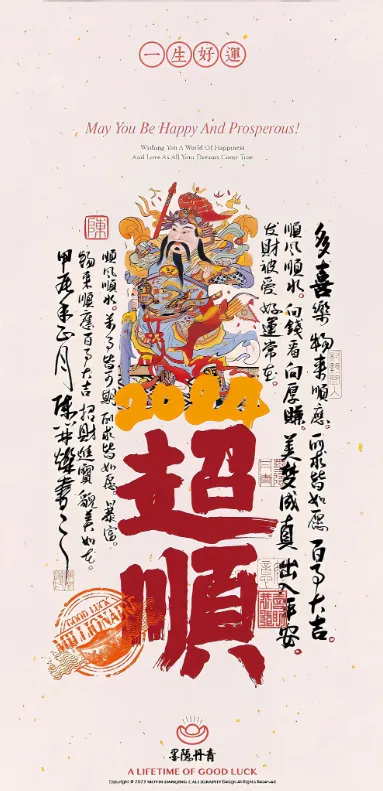 一生好運
May You Be Happy And Prosperous!
Wishing You A World Of Happiness
And Love As All Your Dreams Come True.
多喜樂 物来順應 所求皆如愿 百事大吉。
順風順水。向錢看向厚賺。美梦成真 出入平安
发財被爱 好運常在。
2024
超順
陳
順風順水。万事皆可期 所求皆如愿。以暴富。
物来順應百事大吉 招財進寶 貌美如花。
甲辰年正月
GOOD LUCK
MILLIONAIRE
墨隐丹青
A LIFETIME OF GOOD LUCK
Copyright © 2023 MOYIN DANQING CALLIGRAPHY Design All Rights Reserved